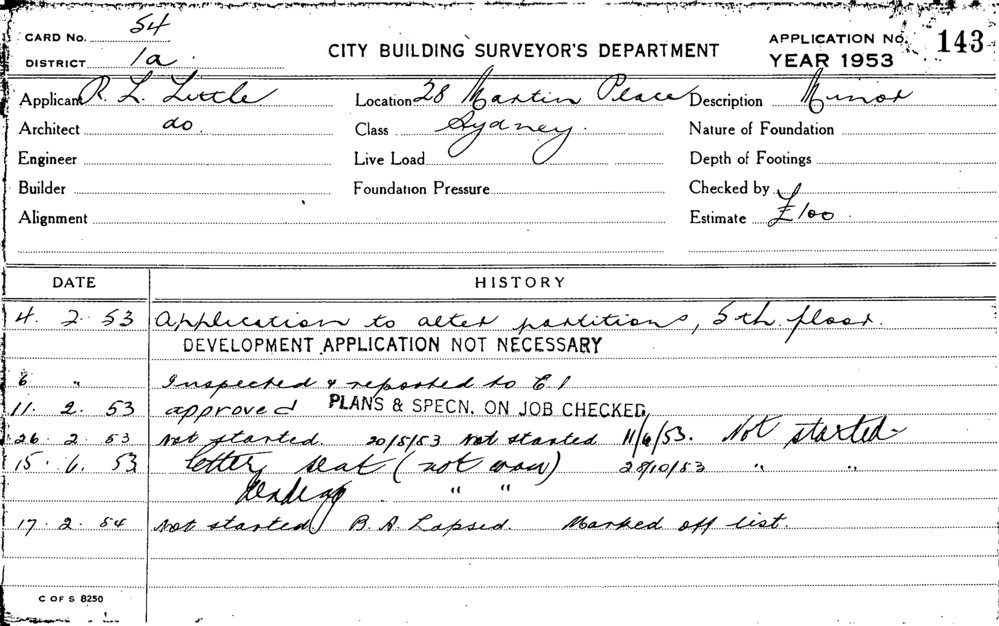 CARD No. 54
DISTRICT 1a.
CITY BUILDING SURVEYOR'S DEPARTMENT
APPLICATION No. 143
YEAR 1953
Applicant R. L. Little Location 28 Martin Place Description Minor
Architect do. Class Sydney. Nature of Foundation
Engineer Live Load Depth of Footings
Builder Foundation Pressure Checked by
Alignment Estimate £100.
DATE HISTORY
4. 2. 53 Application to alter partitions, 5th. floor.
DEVELOPMENT APPLICATION NOT NECESSARY
6 " Inspected & reported to C. I
11. 2. 53 approved PLANS & SPECN. ON JOB CHECKED
26. 2. 53 Not started. 20/5/53 Not started 11/6/53. Not started
15. 6. 53 letter sent (not 28/10/53 " "
" "
17. 2. 54 Not started B. A Lapsed. Marked off list.
C OF S 8250